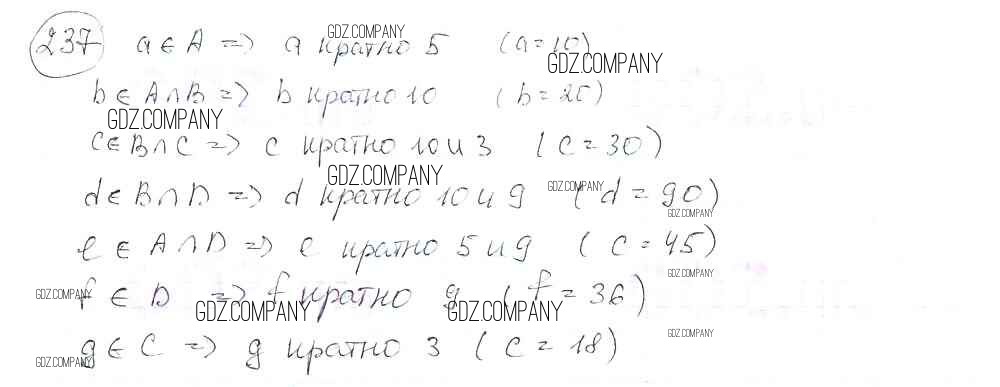 237 a ∈ A => a кратно 5 (a = 10)
b ∈ A ∩ B => b кратно 10 (b = 20)
c ∈ B ∩ C => c кратно 10 и 3 (c = 30)
d ∈ B ∩ D => d кратно 10 и 9 (d = 90)
e ∈ A ∩ D => e кратно 5 и 9 (c = 45)
f ∈ D => f кратно 9 (f = 36)
g ∈ C => g кратно 3 (c = 18)
GDZ.COMPANY
GDZ.COMPANY
GDZ.COMPANY
GDZ.COMPANY
GDZ.COMPANY
GDZ.COMPANY
GDZ.COMPANY
GDZ.COMPANY
GDZ.COMPANY
GDZ.COMPANY
GDZ.COMPANY
GDZ.COMPANY